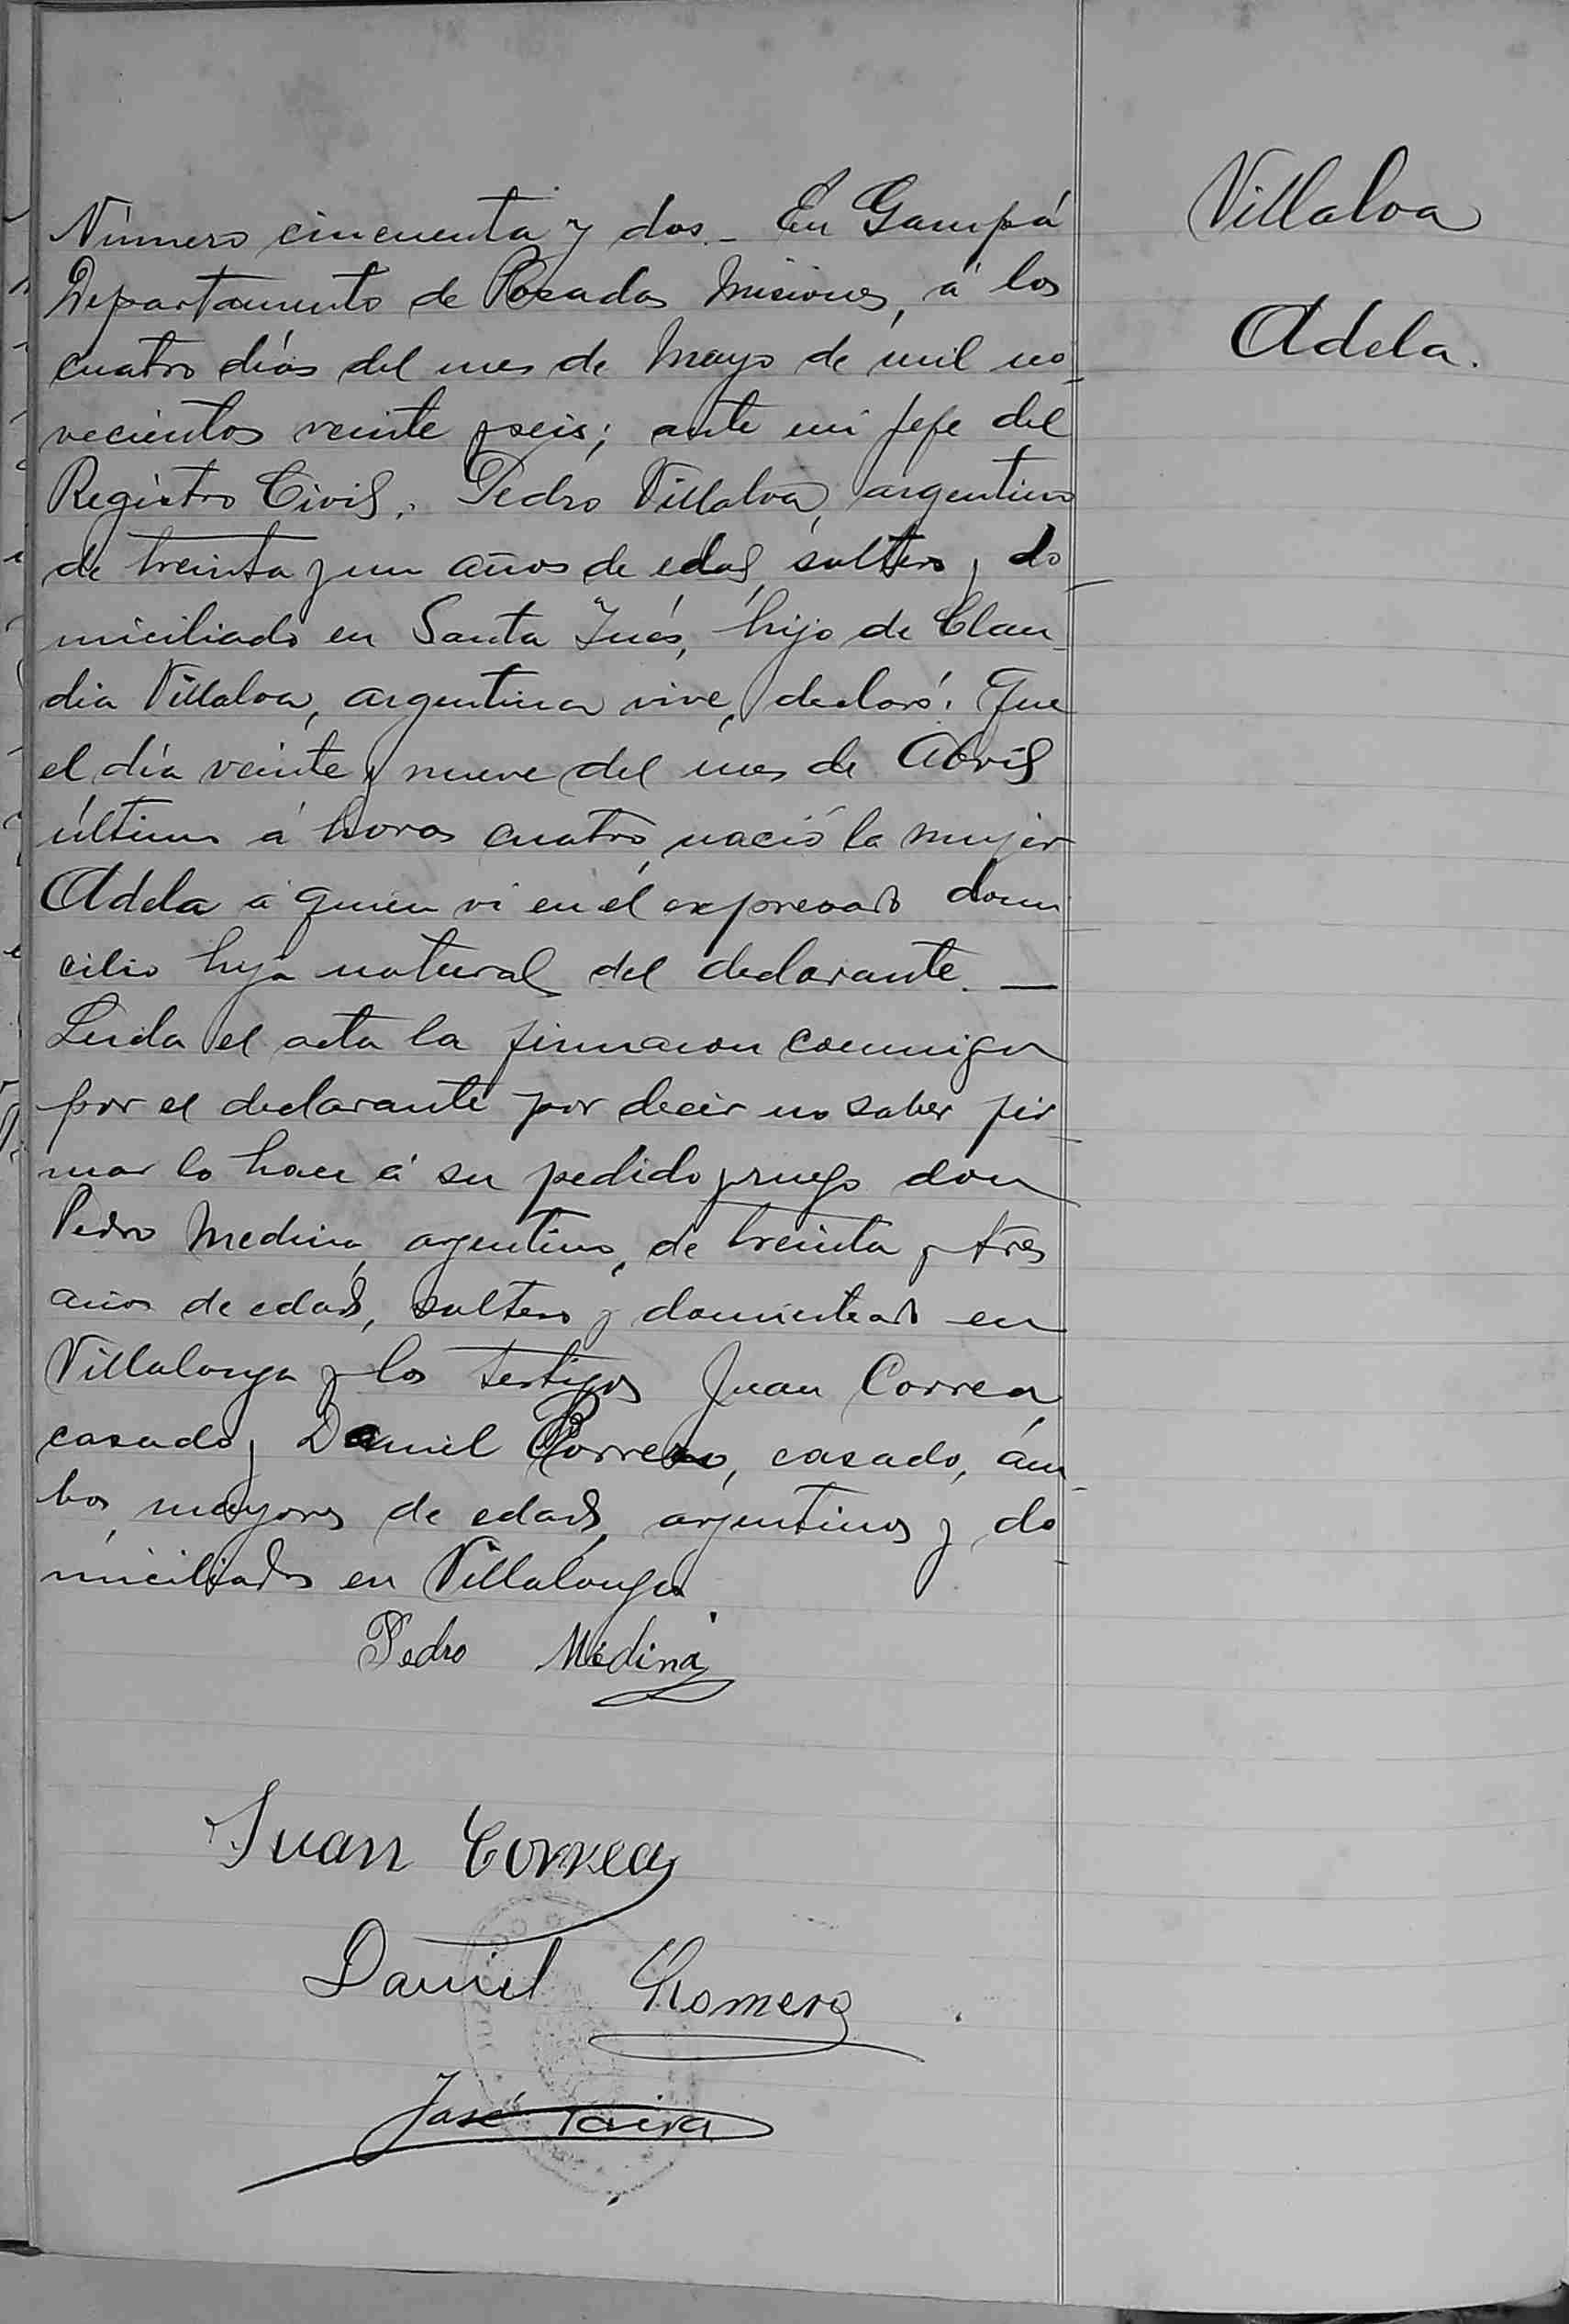 Número cincuenta y dos._ En Garupá
Departamento de Posadas Misiones, á los
cuatro días del mes de Mayo de mil no-
vecientos veinte y seis; ante mi Jefe del
Registro Civil, Pedro Villalva, argentino
de treinta y un años de edad, soltero, do-
miciliado en Santa Inés, hijo de Clau-
dia Villalva, argentina vive, declaró: Que
el día veinte y nueve del mes de Abril
último á horas cuatro, nació la mujer
Adela á quien vi en el expresado domi
cilio hija natural del declarante. _
Leida el acta la firmaron conmigo
por el declarante por decir no saber fir-
mar lo hace á su pedido y ruego don
Pedro Medina, argentino, de treinta y tres
años de edad, soltero y domiciliado en
Villalonga y los testigos Juan Correa,
casado, Daniel Romero, casado, ám-
bos, mayores de edad, argentinos y do-
miciliados en Villalonga.
Pedro Medina
Juan Correa
Daniel Romero
José
Villalva
Adela.